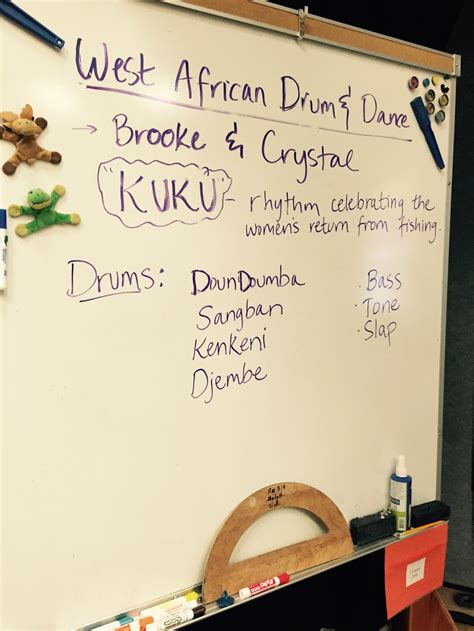 West African Drum & Dance
→ Brooke & Crystal
"KUKU" - rhythm celebrating the
women's return from fishing.
Drums:
DounDoumba
Sangban
Kenkeni
Djembe
· Bass
· Tone
· Slap
EXPO